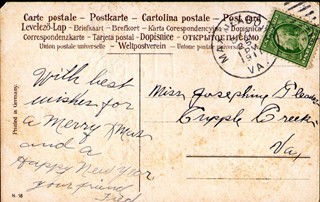 Carte postale - Postkarte - Cartolina postale - Post Card
Levelező-Lap - Briefkaart - Brefkort - Karta Korespondencyjna -
Korrespondenzkarte - Tarjeta postal - Dopisnice - ОТКРЫТОЕ
Union postale universelle - Weltpostverein - Union postale universelle
VA.
With best
wishes for
a Merry Xmas
and a
Happy New Year
your friend
Fred
Miss Josephine
Cripple Creek
Va,
Printed in Germany.
N. 18